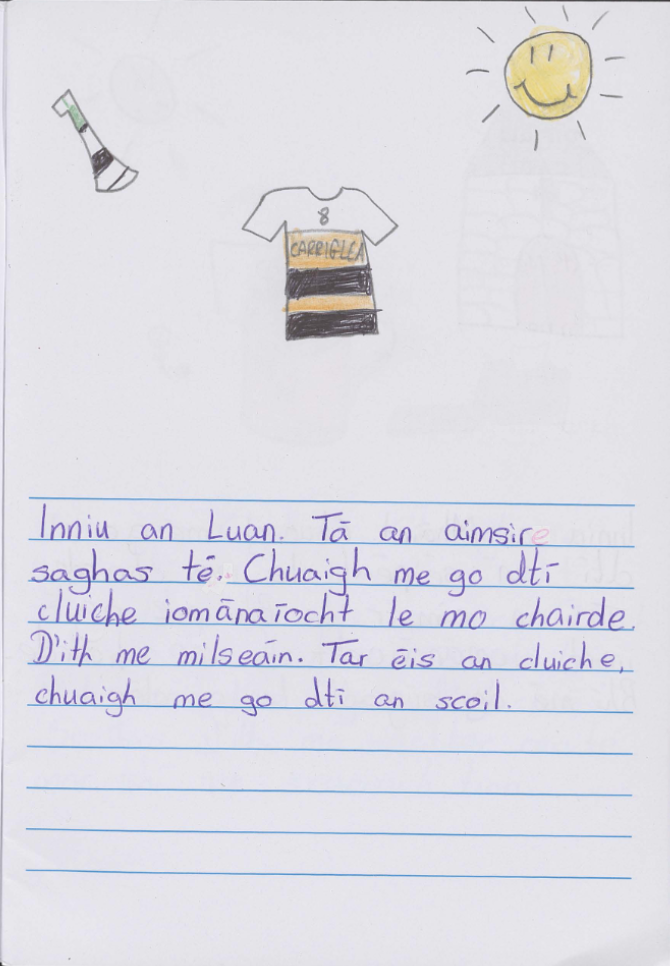 8
CARRIGLEA
Inniu an Luan. Tá an aimsire
saghas té. Chuaigh me go dtí
cluiche iománaíocht le mo chairde.
D'ith me milseáin. Tar éis an cluiche,
chuaigh me go dtí an scoil.